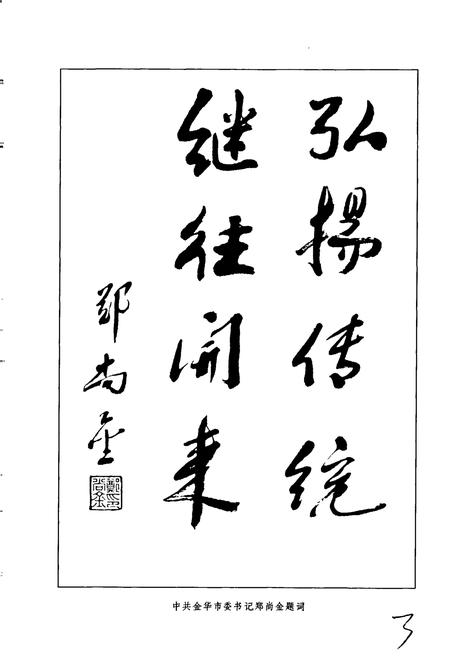 弘揚传统
继往开来
郑尚金
中共金华市委书记郑尚金题词